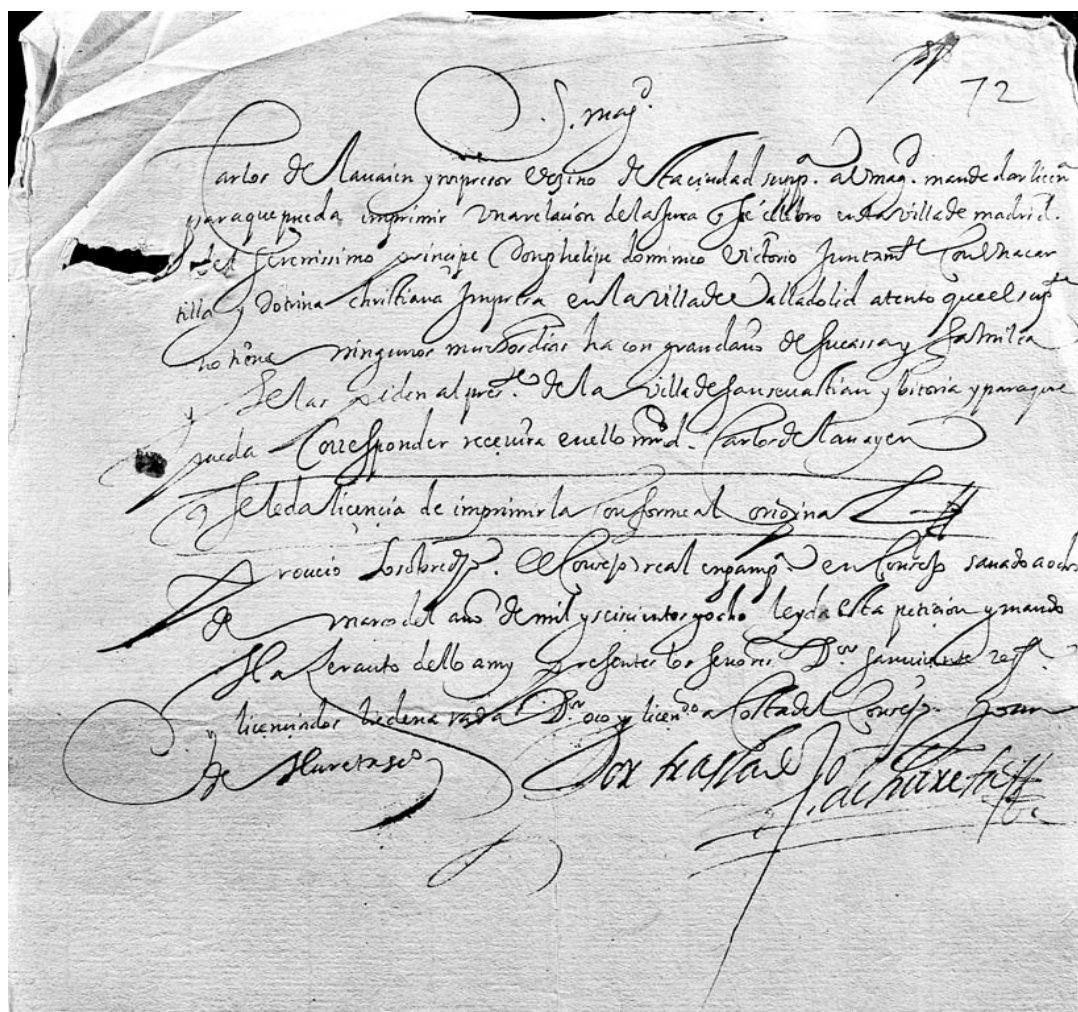 72
S. mag.d
Carlos de Lauaien ynpresor vezino desta ciudad supp.ca a V mag.d mande dar licen.a
para que pueda imprimir vna relaçion de la Jura q se çelebro en la villa de madrid.
del serenissimo prinçipe Don phelipe dominico Victorio Juntam.te con vna car
tilla y dotrina christiana Impresa en la villa de Valladolid atento que el sup.te
no tiene ningunos muchos dias ha con gran daño de su cassa y familia
y se las piden al pres.te de la villa de san sеuastian y bitoria y para que
pueda Corresponder receuira en ello mrd. Carlos de Lauayen
Se le da licencia de imprimirla conforme al original
Proueio Lo sobredho. el Consejo real en pamp.na en Consejo sauado a ocho
de março del año de mil y seiscientos y ocho leyda esta peticion y mando
hazer auto dello a my presentes los señores D.or sanuicente reg.te
licenciados liedena rada D.or oco y licen.do acosta del Consejo Joan
de Hureta s.o
Por traslado Jo. de hureta s.o